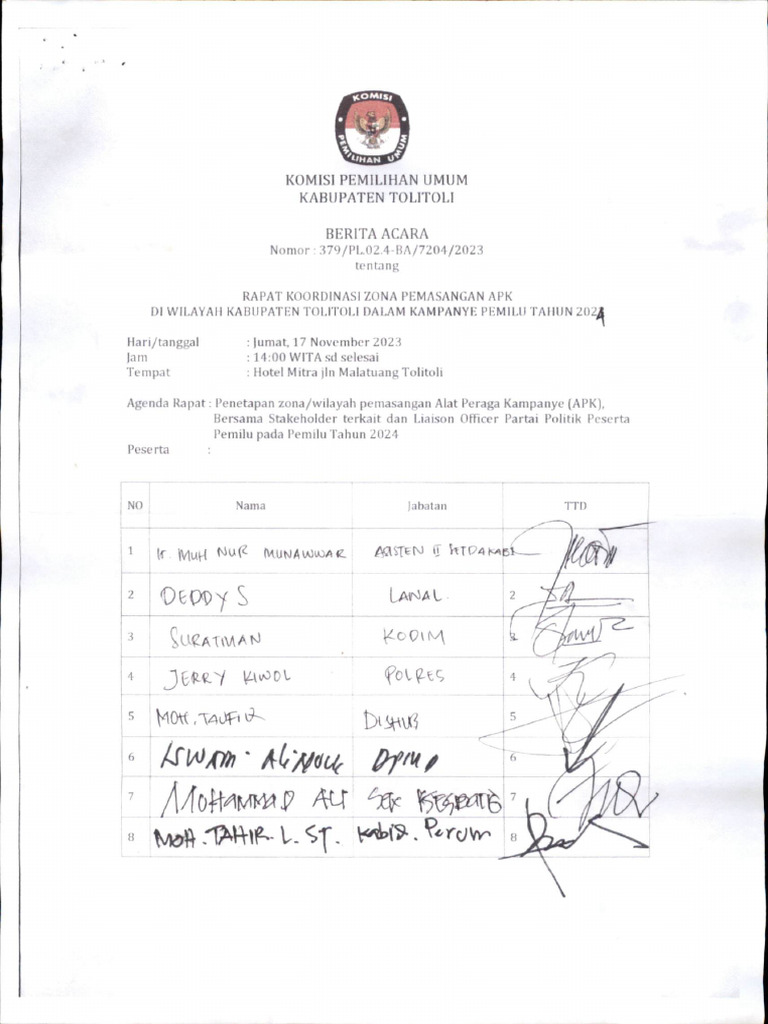 KOMISI
PEMILIHAN UMUM
KOMISI PEMILIHAN UMUM
KABUPATEN TOLITOLI
BERITA ACARA
Nomor : 379/PL.02.4-BA/7204/2023
tentang
RAPAT KOORDINASI ZONA PEMASANGAN APK
DI WILAYAH KABUPATEN TOLITOLI DALAM KAMPANYE PEMILU TAHUN 2024
Hari/tanggal : Jumat, 17 November 2023
Jam : 14:00 WITA sd selesai
Tempat : Hotel Mitra jln Malatuang Tolitoli
Agenda Rapat : Penetapan zona/wilayah pemasangan Alat Peraga Kampanye (APK),
Bersama Stakeholder terkait dan Liaison Officer Partai Politik Peserta
Pemilu pada Pemilu Tahun 2024
Peserta :
NO Nama Jabatan TTD
1 Ir. MUH NUR MUNAWWAR ASISTEN II
2 DEDDY S LANAL. 2
3 SURATMAN KODIM 3
4 JERRY KIWOL POLRES 4
5 MOH. TAUFIK DISHUB 5
6 6
7 MOHAMMAD ALI 7
8 MOH. TAHIR. L. ST. Kabid. Perum 8